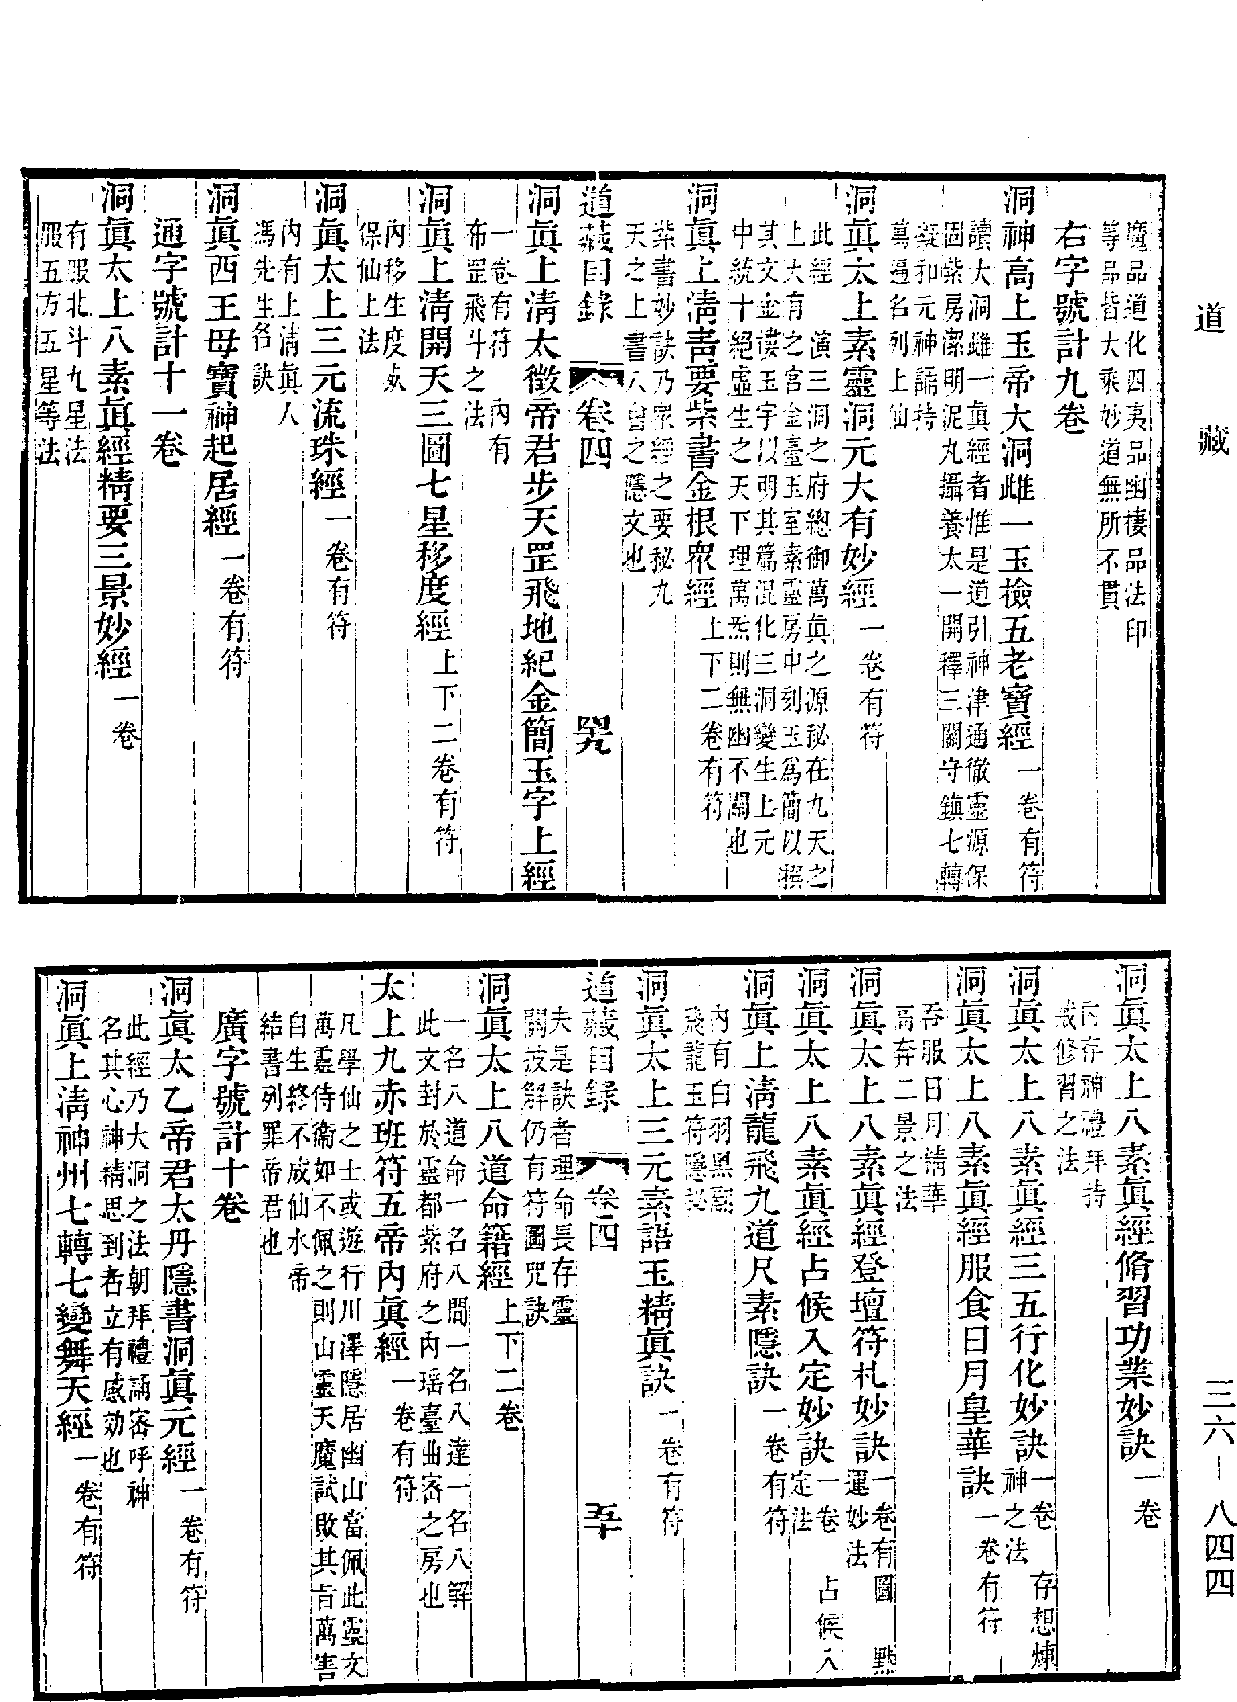 道藏
三六—八四四
魔品道化四夷品幽棲品法印
等品皆大乘妙道無所不貫
右字號計九卷
洞神高上玉帝大洞雌一玉檢五老寶經一卷有符
讀大洞雌一真經者惟是道引神津通徹靈源保
固紫房潔明泥丸攝養太一開釋三關守鎮七轉
凝和元神誦持
萬遍名列上仙
洞眞太上素靈洞元大有妙經一卷有符
此經 演三洞之府總御萬眞之源秘在九天之
上大有之宮金臺玉室素靈房中刻玉爲簡以撰
其文金縷玉字以明其篇混化三洞變生上元
中統十絕虛生之天下理萬炁則無幽不關也
洞眞上淸靑要紫書金根衆經上下二卷有符
紫書妙訣乃衆經之要秘九
天之上書八會之隱文也
道藏目錄 卷四 四九
洞眞上淸太微帝君步天罡飛地紀金簡玉字上經
一卷有符 內有
布罡飛斗之法
洞眞上淸開天三圖七星移度經上下二卷有符
內移生度炁
保仙上法
洞眞太上三元流珠經一卷有符
內有上淸眞人
馮先生各訣
洞眞西王母寶神起居經一卷有符
通字號計十一卷
洞眞太上八素眞經精要三景妙經一卷
有服北斗九星法
服五方五星等法
洞眞太上八素眞經脩習功業妙訣一卷
內存神禮拜持
戒修習之法
洞眞太上八素眞經三五行化妙訣一卷 存想煉
神之法
洞眞太上八素眞經服食日月皇華訣一卷有符
吞服日月精華
高奔二景之法
洞眞太上八素眞經登壇符札妙訣一卷有圖 點
運妙法
洞眞太上八素眞經占候入定妙訣一卷 占候入
定法
洞眞上淸龍飛九道尺素隱訣一卷有符
內有白羽黑翮
飛龍玉符隱訣
洞眞太上三元素語玉精眞訣一卷有符
道藏目錄 卷四 五十
夫是訣者理命長存靈
關披解仍有符圖咒訣
洞眞太上八道命籍經上下二卷
一名八道命一名八間一名八達一名八解
此文封於靈都紫府之內瑶臺曲密之房也
太上九赤班符五帝內眞經一卷有符
凡學仙之士或遊行川澤隱居幽山當佩此靈文
萬靈侍衛如不佩之則山靈天魔試敗其旨萬害
自生終不成仙水帝
結書列罪帝君也
廣字號計十卷
洞眞太乙帝君太丹隱書洞眞元經一卷有符
此經乃大洞之法朝拜禮誦密呼神
名其心神精思到者立有感効也
洞眞上淸神州七轉七變舞天經一卷有符